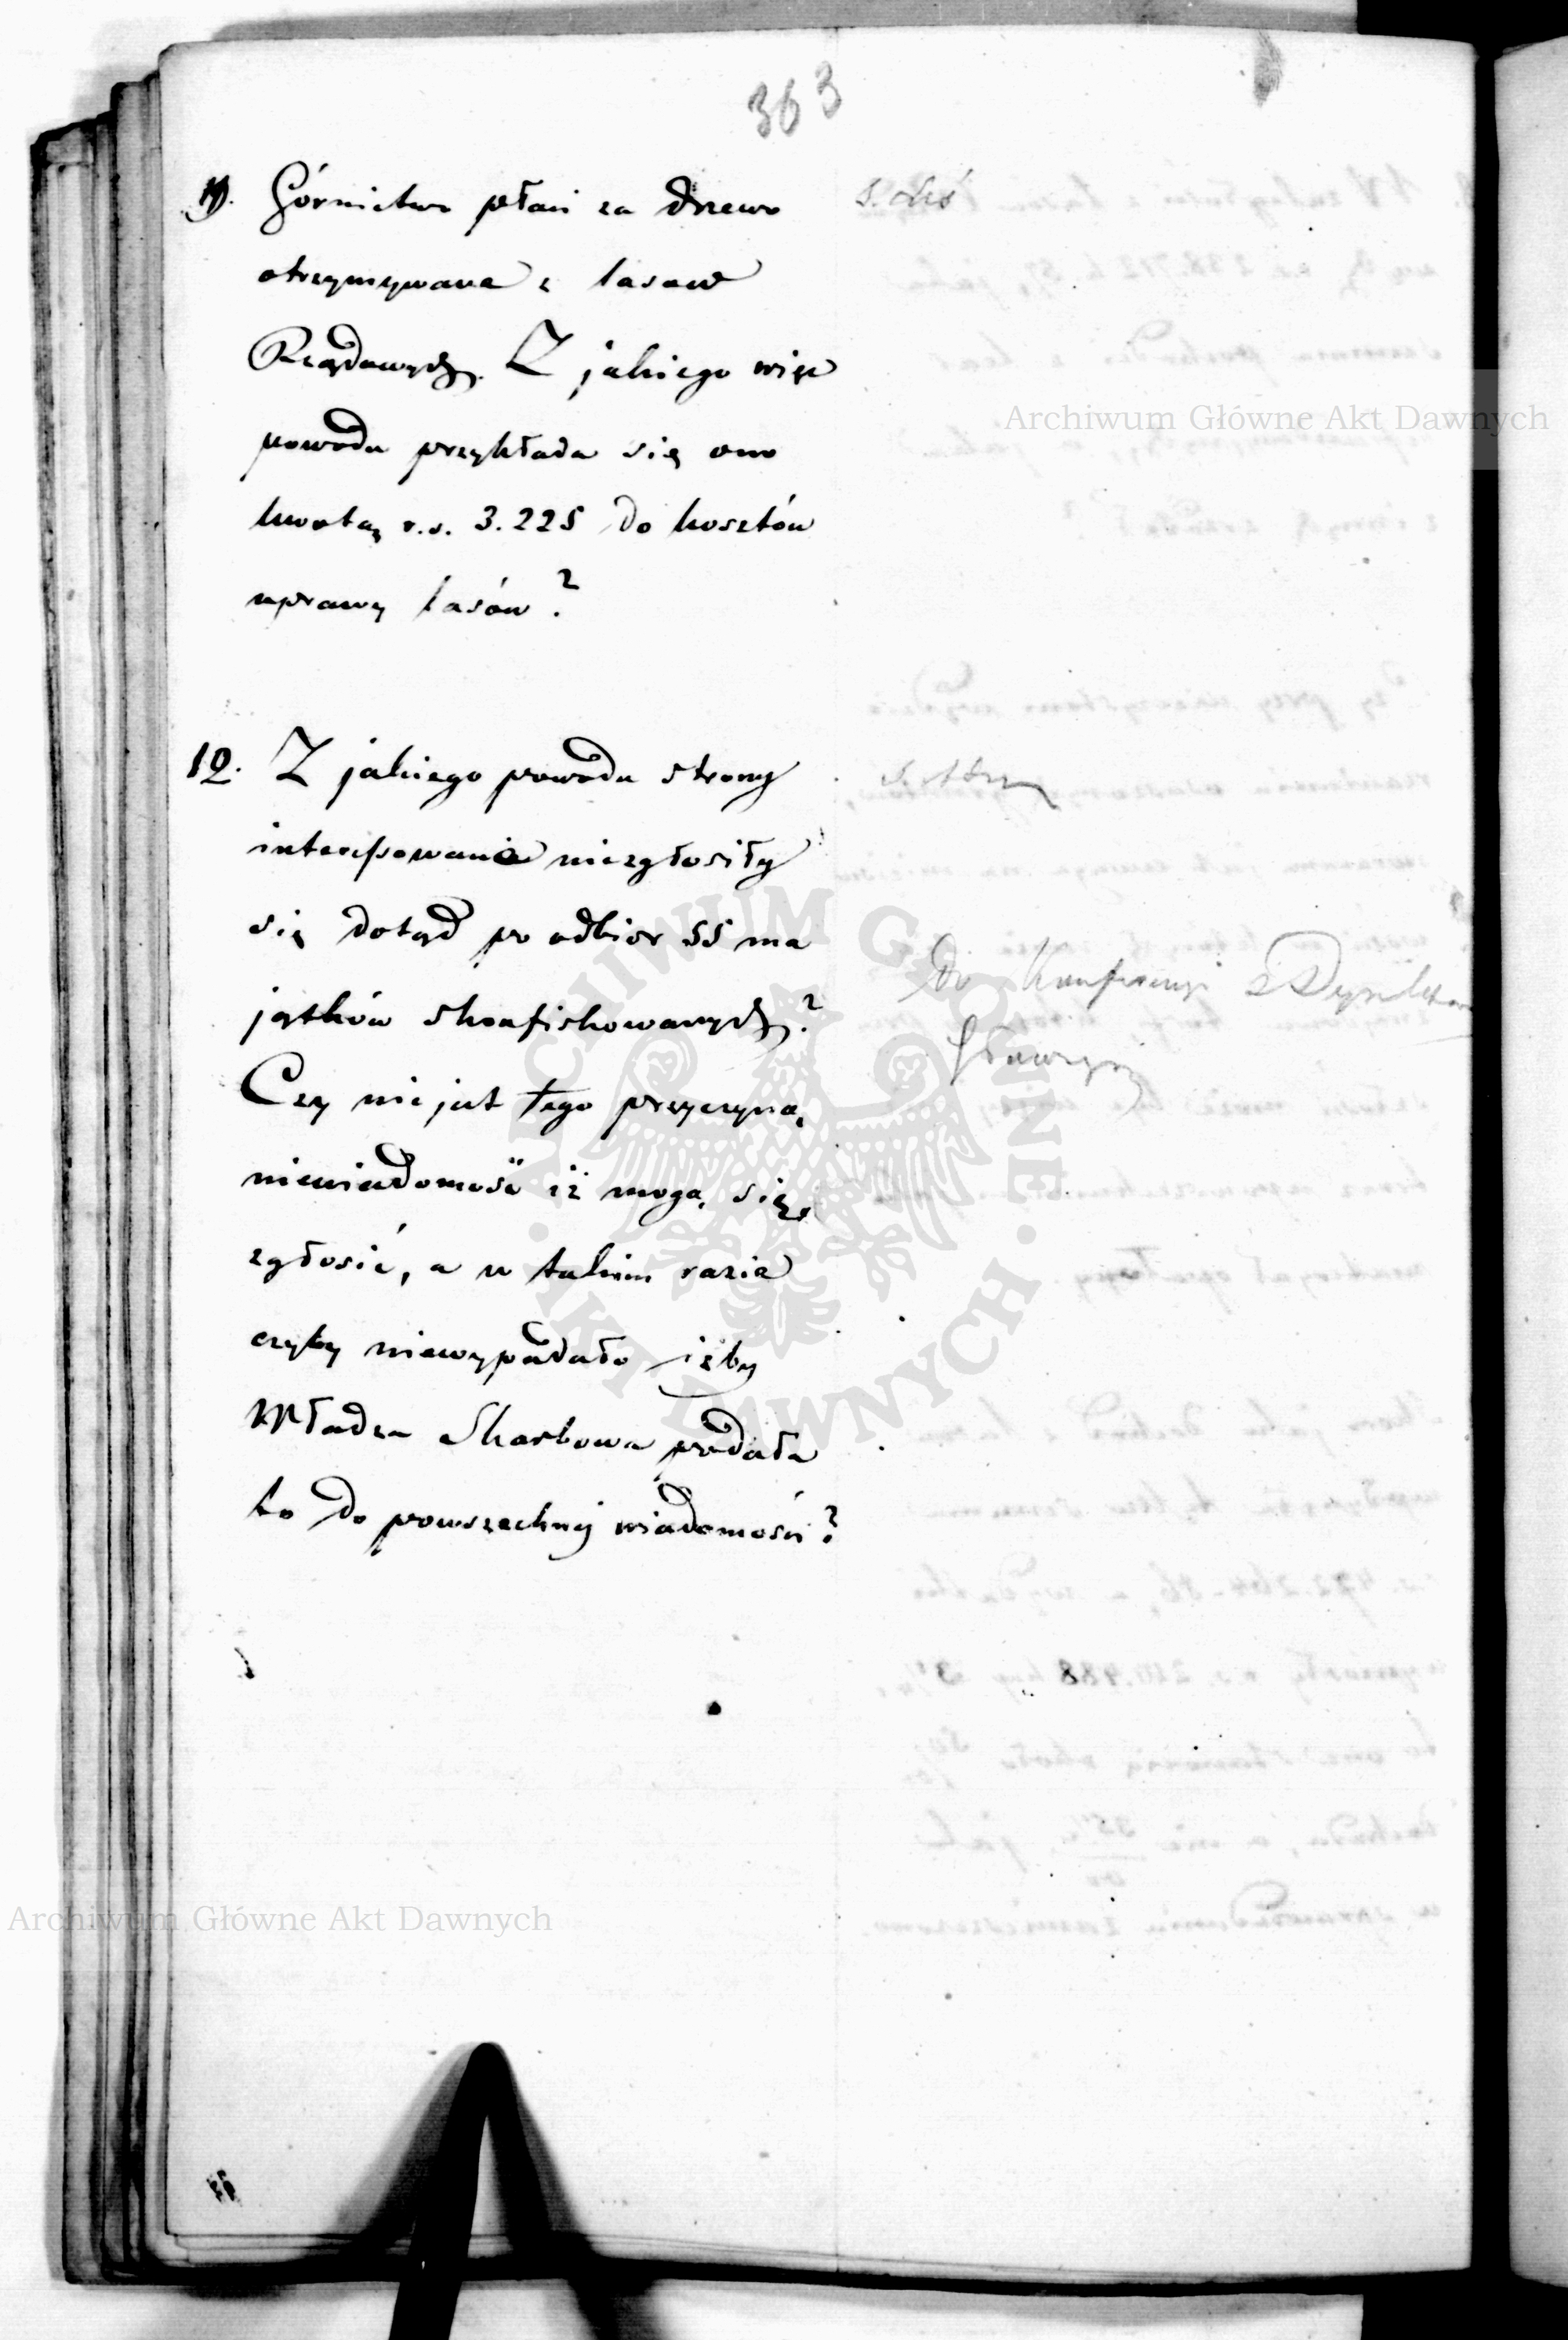 363
11. Górnictwo płaci za drzewo
otrzymywane z lasów
Rządowych. Z jakiego więc
powodu przykłada się ono
kwotą r.s. 3.225 do kosztów
uprawy lasów?
12. Z jakiego powodu strony
interessowane niezgłosiły
się dotąd po odbiór 55 ma
jątków skonfiskowanych?
Czy nie jest tego przyczyną
niewiadomość iż mogą się
zgłosić, a w takim razie
czyby niewypadało iżby
Władza Skarbowa podała
to do powszechnej wiadomości?
Do Konferencyi z Dyrektorem
Głównym
Archiwum Główne Akt Dawnych
ARCHIWUM GŁÓWNE AKT DAWNYCH
Archiwum Główne Akt Dawnych